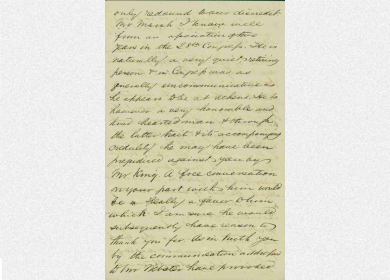 only redound to our discredit
Mr Marsh I know well
from an association of two
years in the 28th Congress. He is
naturally a very quiet & retiring
person & in Congress was as
generally uncommunicative as
he appears to be at He is
however a very honorable and
kind hearted man & through
the latter trait & its accompanying
credulity he may have been
prejudiced against you by
Mr King. A free conversation
on your part with him would
be a really a favor to him
which I am sure he would
subsequently have reason to
thank you for doing. Both you
by the communication addressed
to Mr Webster have provided